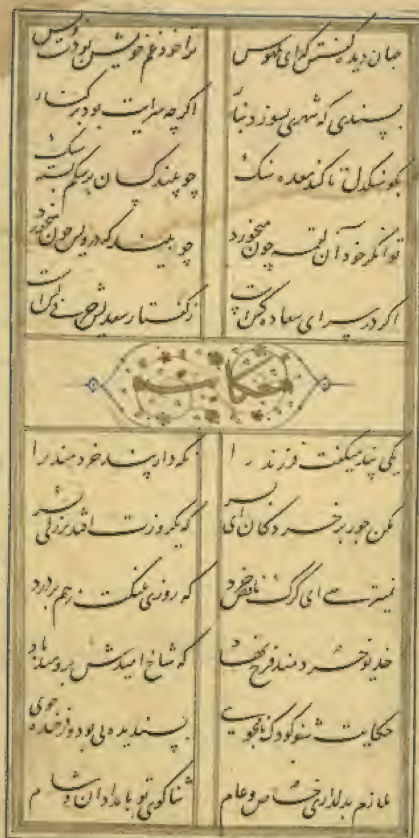 جهان دیده گفتش که ای بوالهوس ترا خود غم خویشتن بود و بس
پسندی که شهری بسوزد بنار اگرچه سرایت بود بر کنار
سنگدل تا کند معده تنگ چو بیند کسان بر شکم بسته سنگ
توانگر خود آن لقمه چون میخورد چو بیند که درویش خون میخورد
اگر در سرای ز گفتار سعدیش حرفی
حکایت
یکی پند میگفت فرزند را نگه دار پند خردمند را
مکن جور بر خردکان ای پسر که یکروزت افتد بزرگی بسر
نمیترسی ای گرگ ناقص خرد که روزی پلنگیت بر هم درد
خدیو خردمند فرخ نهاد که شاخ امیدش برومند باد
حکایت شنو کودک نامجوی پسندیده پی بود و فرخنده خوی
ملازم بدلداری خاص و عام ثناگوی تو بامدادان و شام